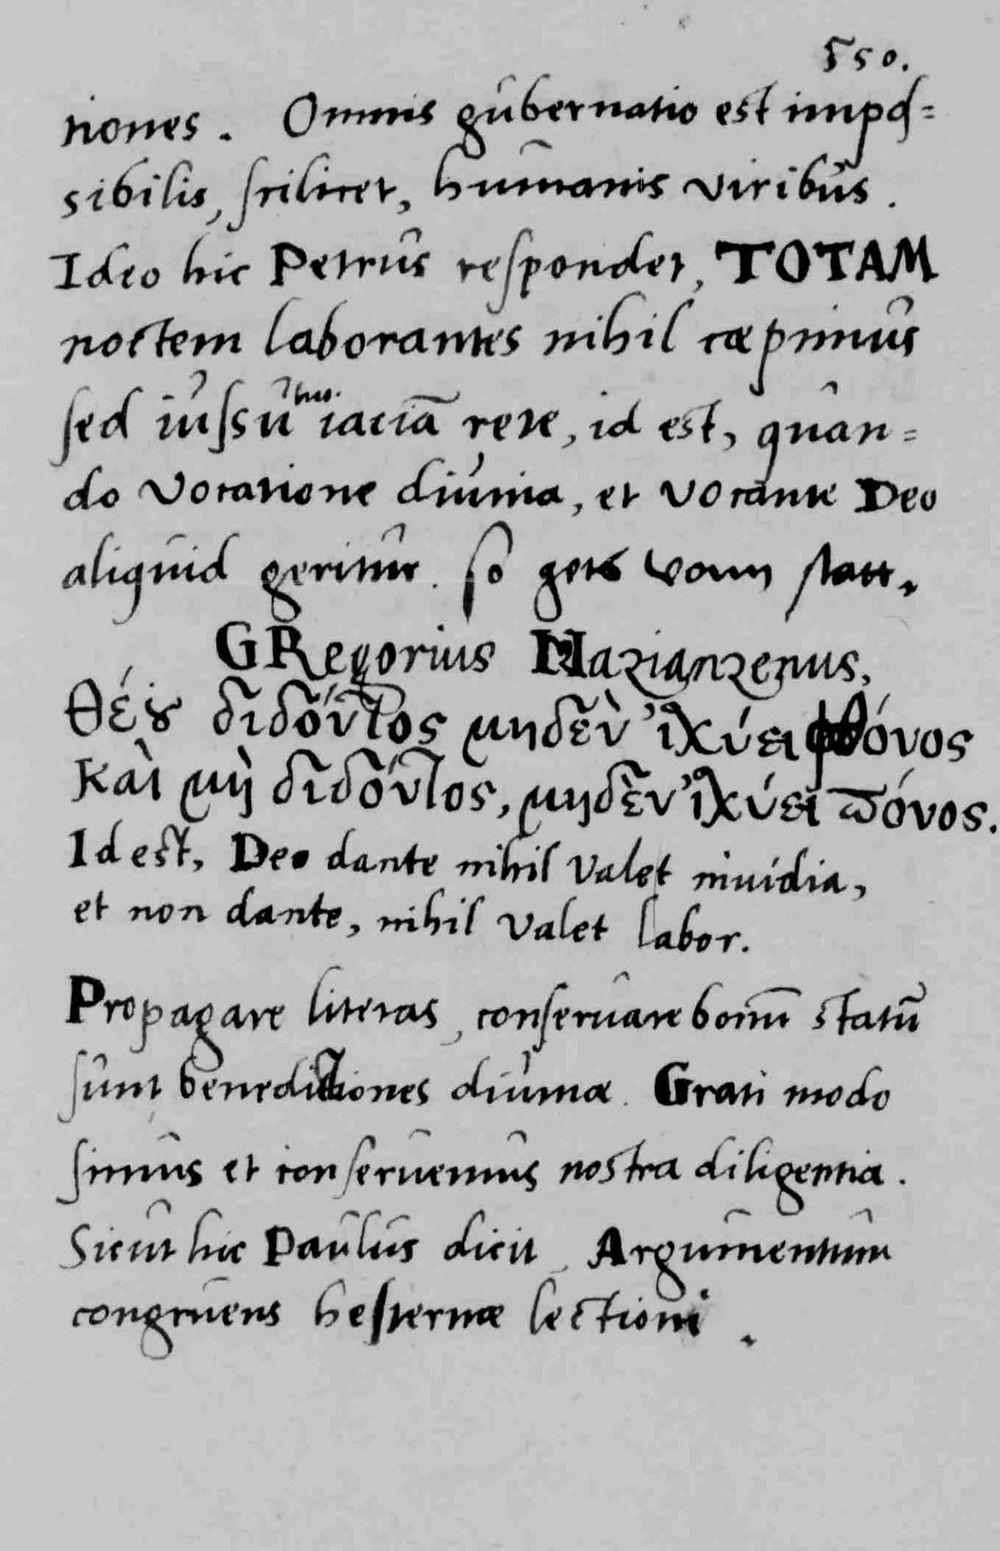 550.
tiones. Omnis gubernatio est impos=
sibilis, scilicet, humanis viribus.
Ideo hic Petrus respondet, TOTAM
noctem laborantes nihil cæpimus
sed iussu tuo iaciā rete, id est, quan=
do vocatione diuina, et vocante Deo
aliquid geritur. so gets vonn statt.
GRegorius Nazianzenus,
Θέȣ διδόντος μηδὲν ἰχύει φθόνος
Καὶ μὴ διδόντος, μηδὲν ἰχύει πόνος.
Id est, Deo dante nihil valet inuidia,
et non dante, nihil valet labor.
Propagare literas, conseruare bonū statū
sunt benedictiones diuinæ. Grati modo
simus et conseruemus nostra diligentia.
Sicut hic Paulus dicit, Argumentum
congruens hesternæ lectioni.